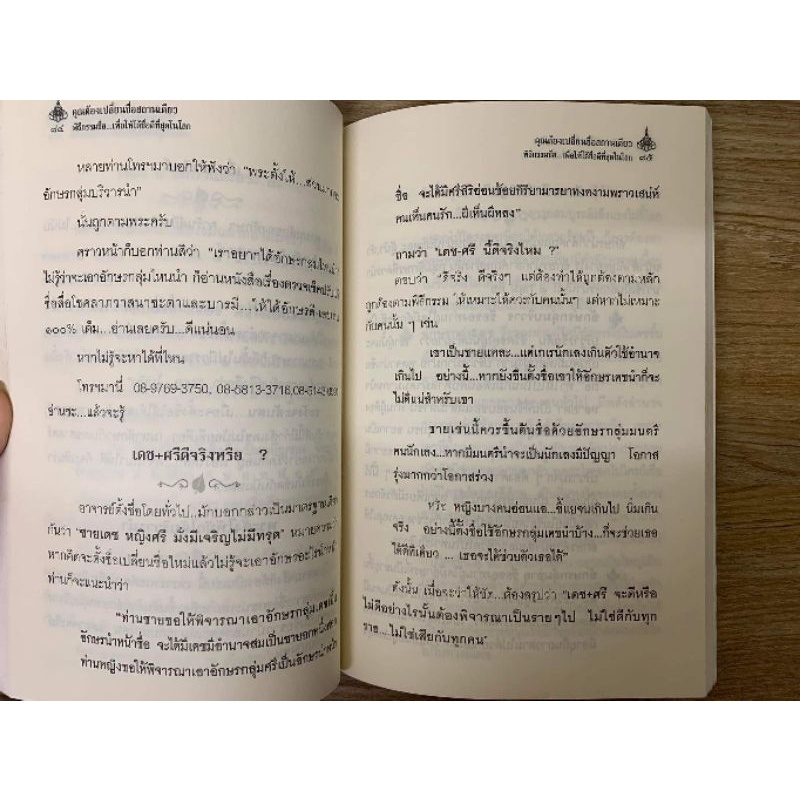 คุณต้องเปลี่ยนชื่อสถานเดียว
๘๔ พิธีกรรมชื่อ...เพื่อให้ได้ชื่อดีที่สุดในโลก
หลายท่านโทรฯมาบอกให้ฟังว่า "พระตั้งให้...
อักษรกลุ่มบริวารนำ"
นั้นถูกตามพระครับ
คราวหน้าก็บอกท่านดีว่า "เราอยากได้อักษรกลุ่มไหนนำ
ไม่รู้ว่าจะเอาอักษรกลุ่มไหนนำ ก็อ่านหนังสือเรื่องตรวจเช็ค
ชื่อสื่อโชคลาภวาสนาชะตาและบารมี...ให้ได้อักษรดี
๑๐๐% เต็ม...อ่านเลยครับ...ดีแน่นอน
หากไม่รู้จะหาได้ที่ไหน
โทรฯมานี่ 08-9769-3750, 08-6813-3716,
อ่านซะ...แล้วจะรู้
เดช+ศรีดีจริงหรือ ?
อาจารย์ตั้งชื่อโดยทั่วไป...มักบอกกล่าวเป็นมาตรฐาน
กันว่า "ชายเดช หญิงศรี มั่งมีเจริญไม่มีทรุด" หมายความว่า
หากคิดจะตั้งชื่อเปลี่ยนชื่อใหม่แล้วไม่รู้จะเอาอักษรอะไรนำหน้า
ท่านก็จะแนะนำว่า
"ท่านชายขอให้พิจารณาเอาอักษรกลุ่มเดช
อักษรนำหน้าชื่อ จะได้มีเดชมีอำนาจสมเป็นชายอกหนึ่ง
ท่านหญิงขอให้พิจารณาเอาอักษรกลุ่มศรีเป็นอักษรนำหน้า
คุณต้องเปลี่ยนชื่อสถานเดียว
พิธีกรรมชื่อ...เพื่อให้ได้ชื่อดีที่สุดในโลก ๘๕
ชื่อ จะได้มีศรีสิริอ่อนช้อยกิริยามารยาทงดงามพราวเสน่ห์
คนเห็นคนรัก...ผีเห็นผีหลง"
ถามว่า "เดช-ศรี นี้ดีจริงไหม ?"
ตอบว่า "ดีจริง ดีจริงๆ แต่ต้องทำให้ถูกต้องตามหลัก
ถูกต้องตามพิธีกรรม ให้เหมาะให้ควรกับคนนั้นๆ แต่หากไม่เหมาะ
กับคนนั้น ๆ เช่น
เขาเป็นชายแหละ...แต่เกเรนักเลงเกินตัวใช้อำนาจ
เกินไป อย่างนี้...หากยังขืนตั้งชื่อเขาให้อักษรเดชนำก็จะ
ไม่ดีแน่สำหรับเขา
ชายเช่นนี้ควรขึ้นต้นชื่อด้วยอักษรกลุ่มมนตรี
คนนักเลง...หากมีมนตรีนำจะเป็นนักเลงมีปัญญา โอกาส
รุ่งมากกว่าโอกาสร่วง
หรือ หญิงบางคนอ่อนแอ...ขี้แยจนเกินไป นิ่มเกิน
จริง อย่างนี้ตั้งชื่อใช้อักษรกลุ่มเดชนำบ้าง...ก็จะช่วยเธอ
ได้ดีทีเดียว ... เธอจะได้ช่วยตัวเธอได้"
ดังนั้น เมื่อจะว่าให้ชัด...ต้องสรุปว่า "เดช+ศรี จะดีหรือ
ไม่ดีอย่างไรนั้นต้องพิจารณาเป็นรายๆไป ไม่ใช่ดีกับทุก
ราย...ไม่ใช่เสียกับทุกคน"